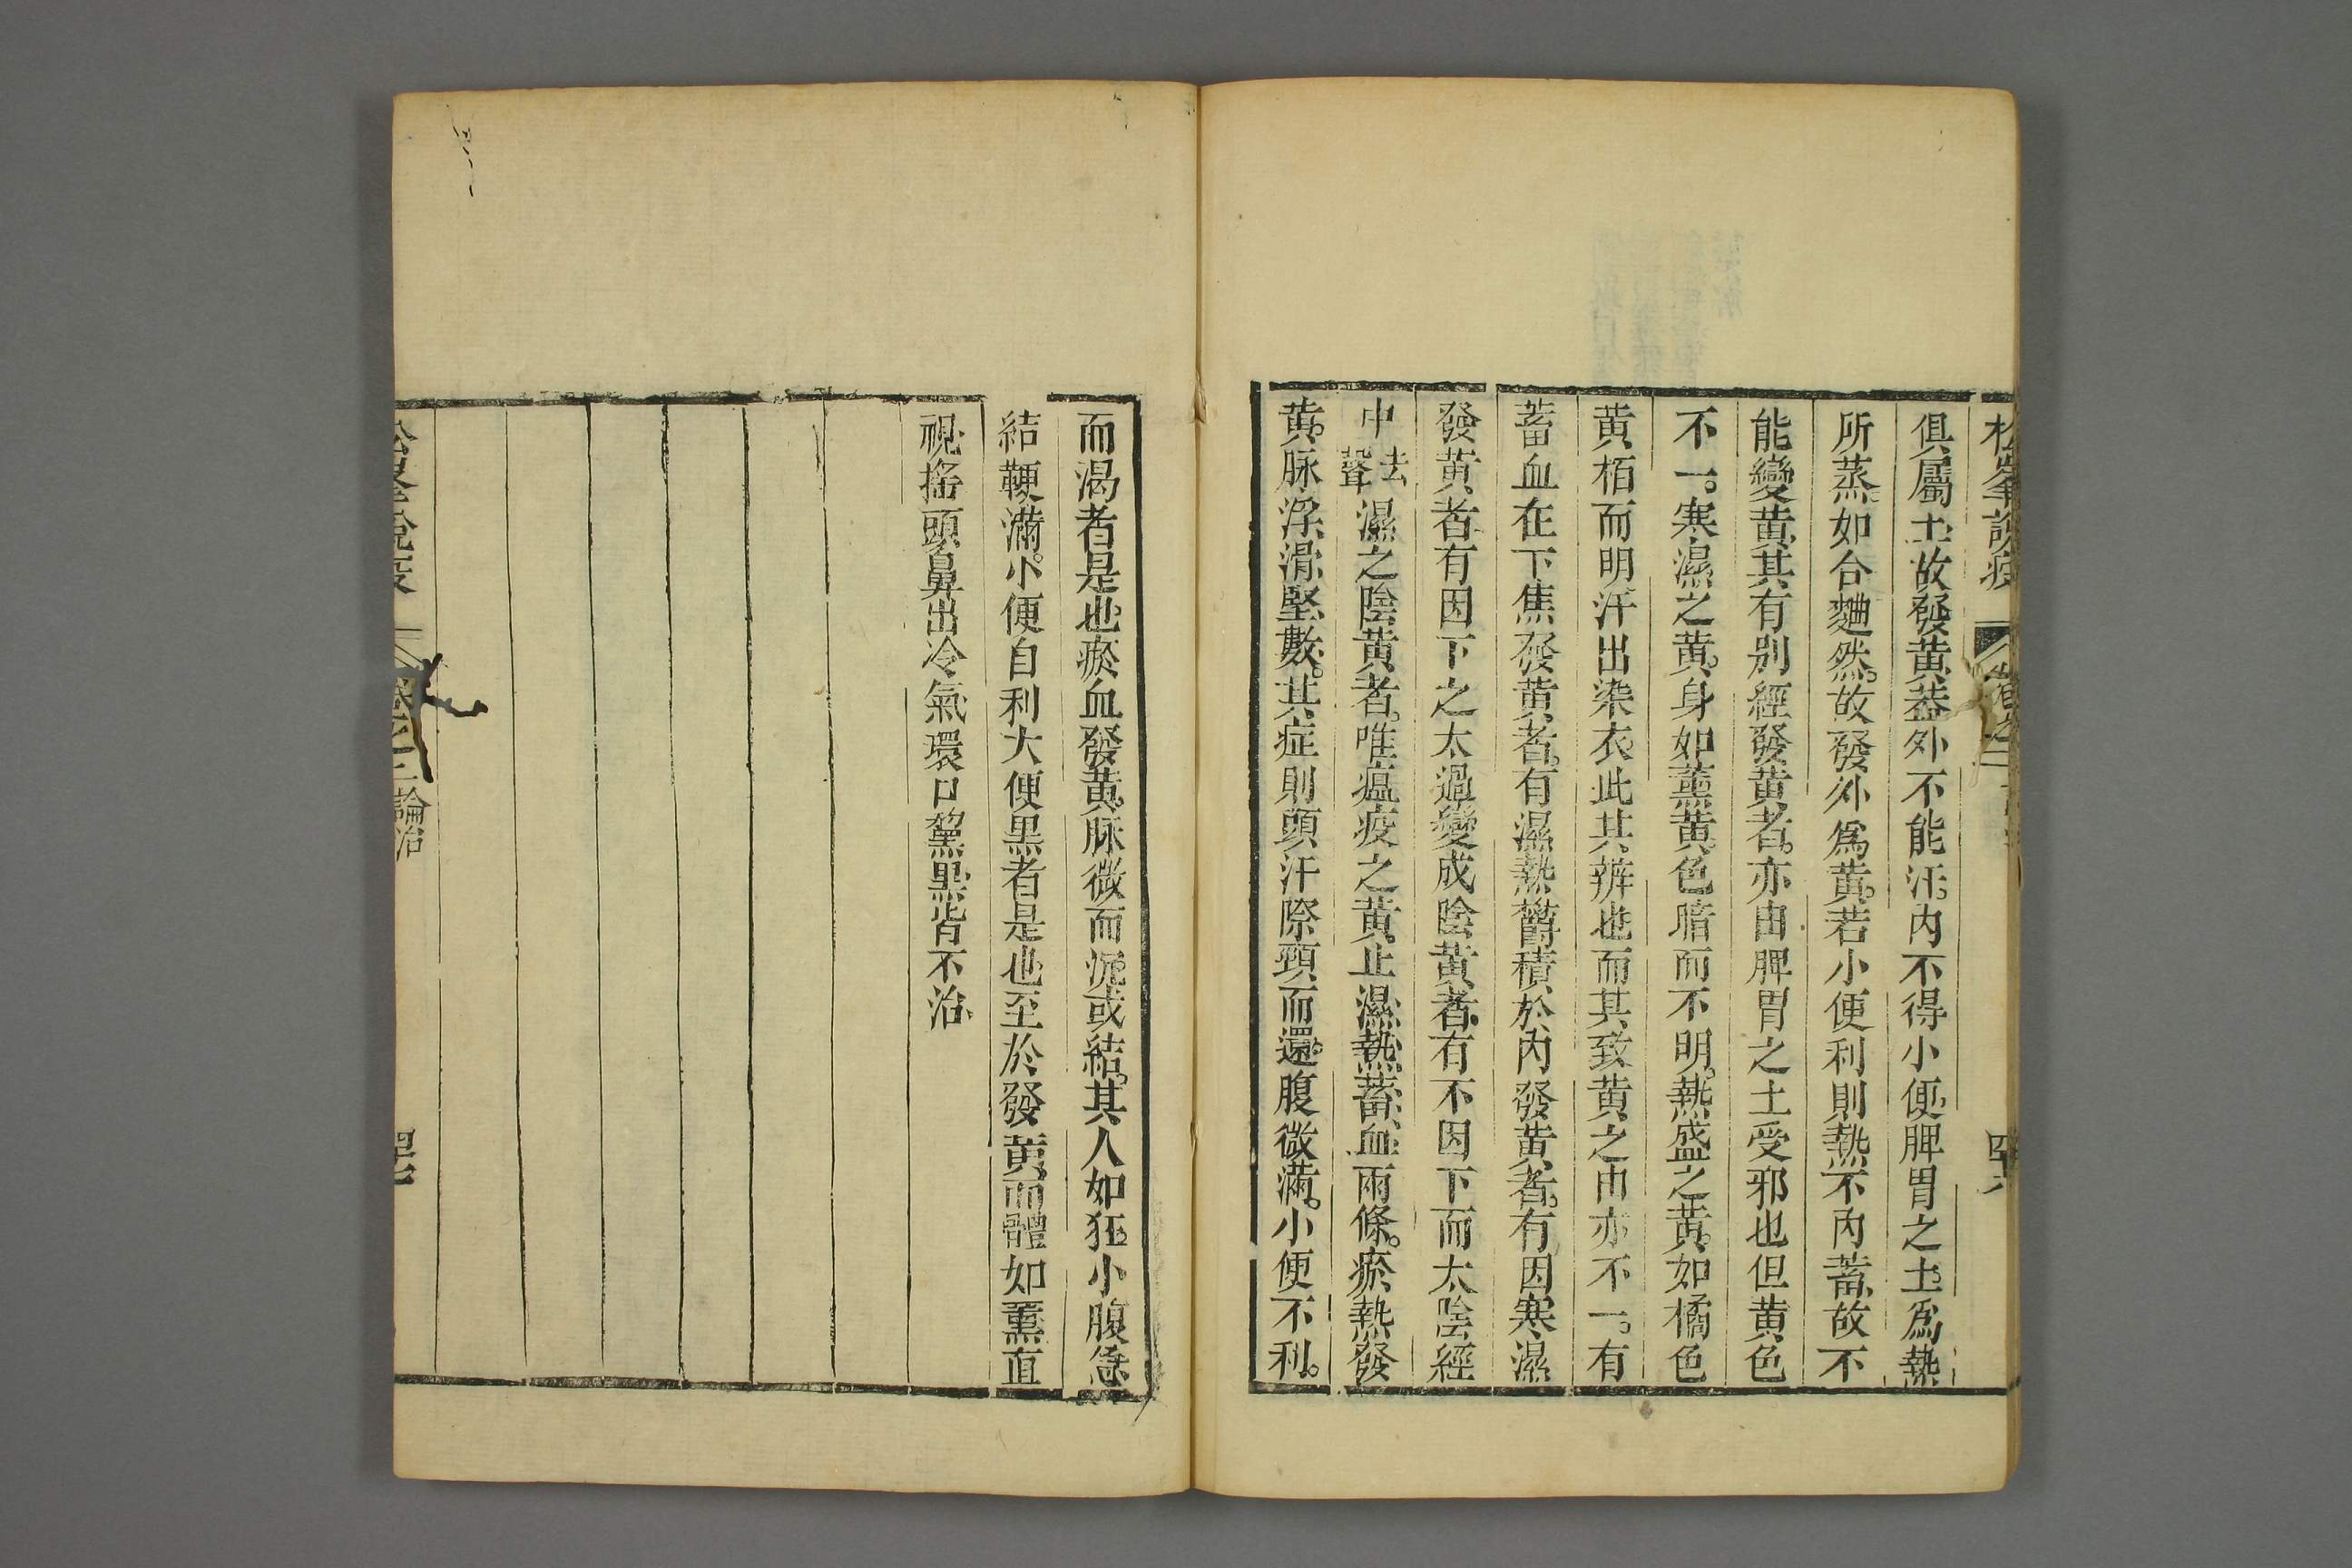 松峯說疫
卷之二
俱屬土故發黃蓋外不能汗。內不得小便脾胃之土爲熱
所蒸如合麯然。故發外爲黃。若小便利則熱不內蓄故不
能變黃其有別經發黃者。亦由脾胃之土受邪也但黃色
不一。寒濕之黃。身如薰黃色暗而不明。熱盛之黃。如橘色
黃栢而明汗出染衣此其辨也而其致黃之由亦不一。有
蓄血在下焦發黃者。有濕熱鬱積於內發黃者。有因寒濕
發黃者有因下之太過變成陰黃者有不因下而太陰經
中去聲濕之陰黃者。唯瘟疫之黃止濕熱蓄血兩條。瘀熱發
黃。脉浮滑堅數。其症則頭汗際頸而還腹微滿。小便不利。
而渴者是也瘀血發黃。脉微而沉或結。其人如狂小腹急
結鞕滿。小便自利大便黑者是也至於發黃而體如薰直
視搖頭鼻出冷氣環口黧黑皆不治
松峯說疫
卷之二論治